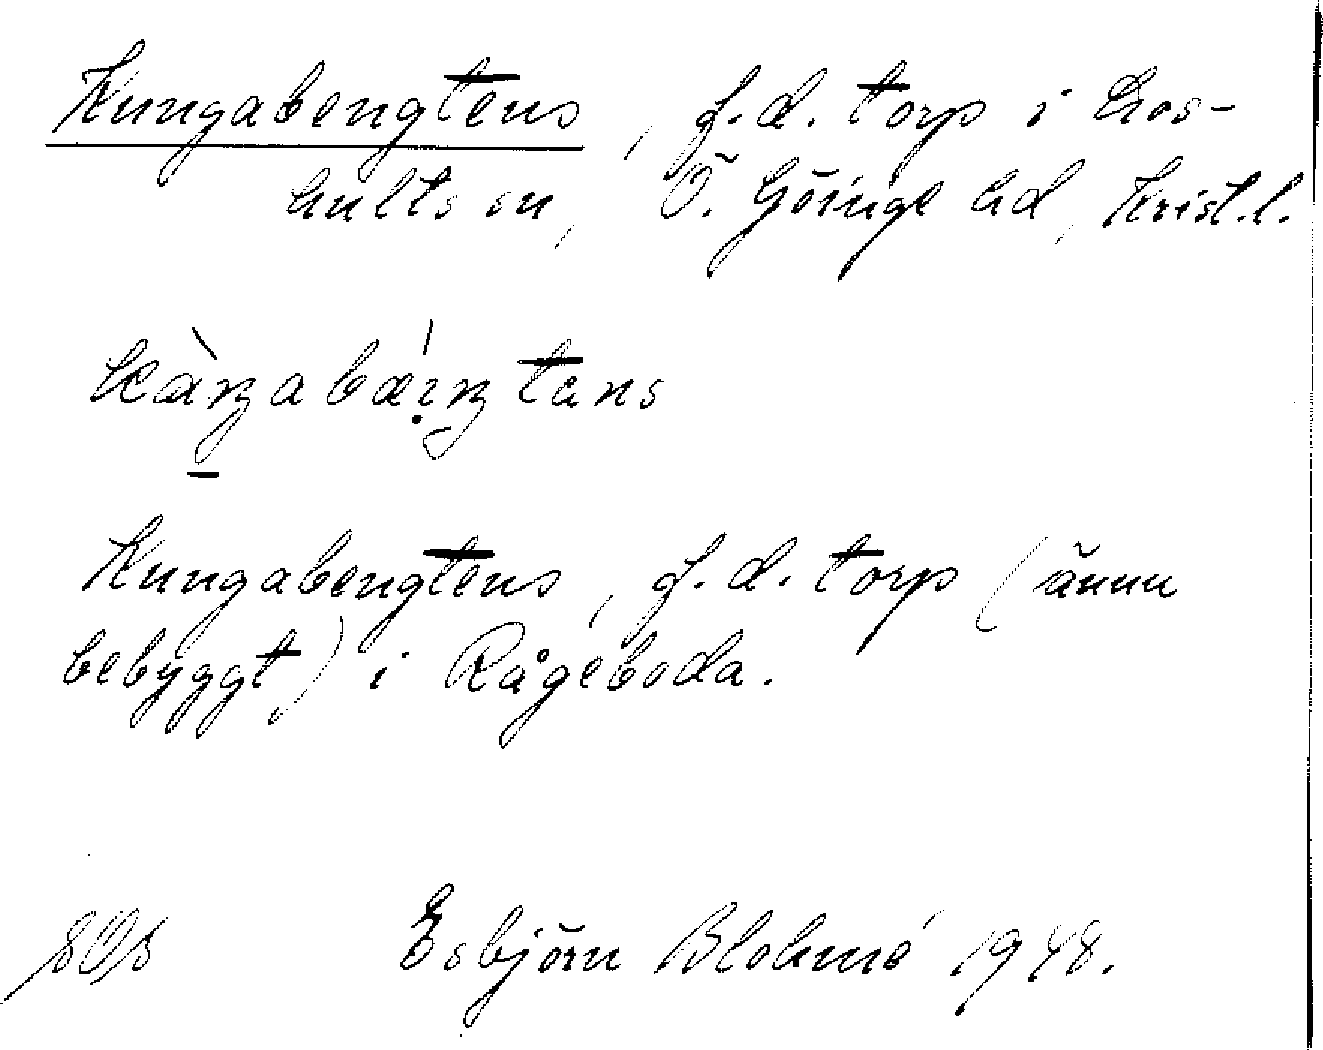 Kungabengtens, f.d. torp i Los-
hults sn, Ö. Göinge hd, Krist.l.
Kungabengtens, f.d. torp (ännu
bebyggt) i Rågeboda.
Esbjörn Blohmé 1948.